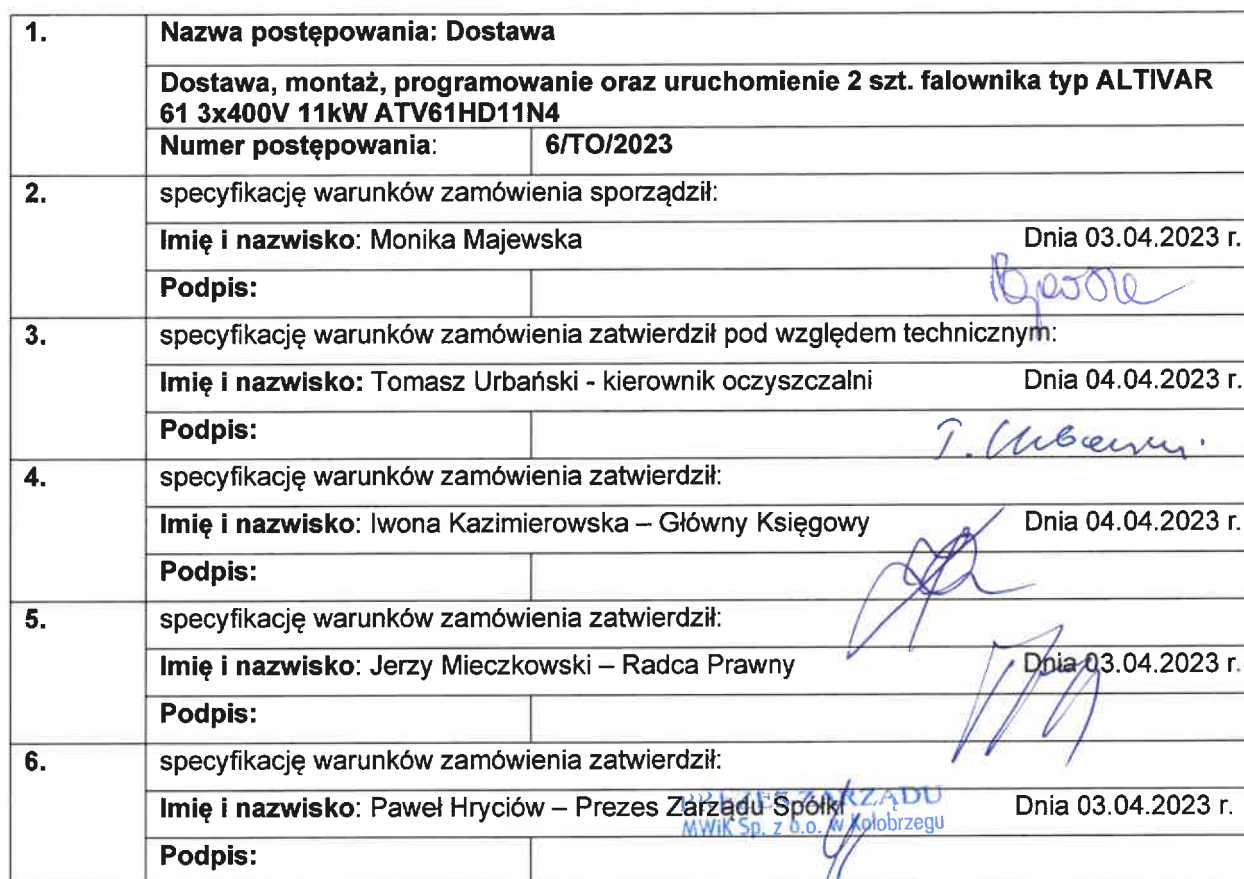 1.
Nazwa postępowania: Dostawa
Dostawa, montaż, programowanie oraz uruchomienie 2 szt. falownika typ ALTIVAR
61 3x400V 11kW ATV61HD11N4
Numer postępowania: 6/TO/2023
2.
specyfikację warunków zamówienia sporządził:
Imię i nazwisko: Monika Majewska Dnia 03.04.2023 r.
Podpis:
3.
specyfikację warunków zamówienia zatwierdził pod względem technicznym:
Imię i nazwisko: Tomasz Urbański - kierownik oczyszczalni Dnia 04.04.2023 r.
Podpis:
4.
specyfikację warunków zamówienia zatwierdził:
Imię i nazwisko: Iwona Kazimierowska – Główny Księgowy Dnia 04.04.2023 r.
Podpis:
5.
specyfikację warunków zamówienia zatwierdził:
Imię i nazwisko: Jerzy Mieczkowski – Radca Prawny Dnia 03.04.2023 r.
Podpis:
6.
specyfikację warunków zamówienia zatwierdził:
PREZES ZARZĄDU
Imię i nazwisko: Paweł Hryciów – Prezes Zarządu Spółki Dnia 03.04.2023 r.
MWiK Sp. z o.o. w Kołobrzegu
Podpis: